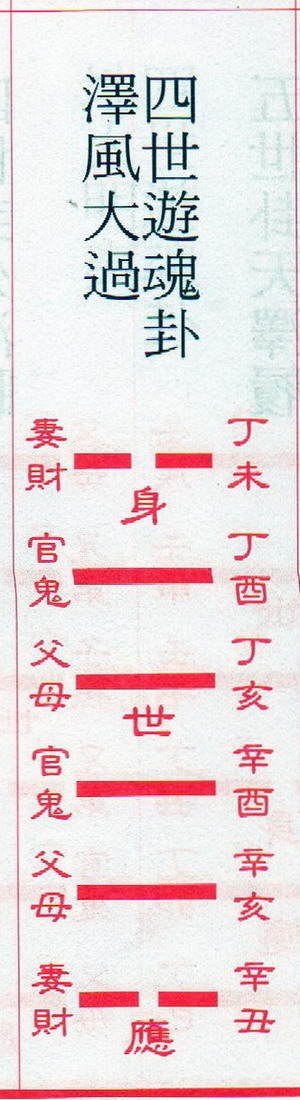 四世遊魂卦
澤風大過
丁未
妻財
身
丁酉
官鬼
丁亥
父母
世
辛酉
官鬼
辛亥
父母
辛丑
妻財
應